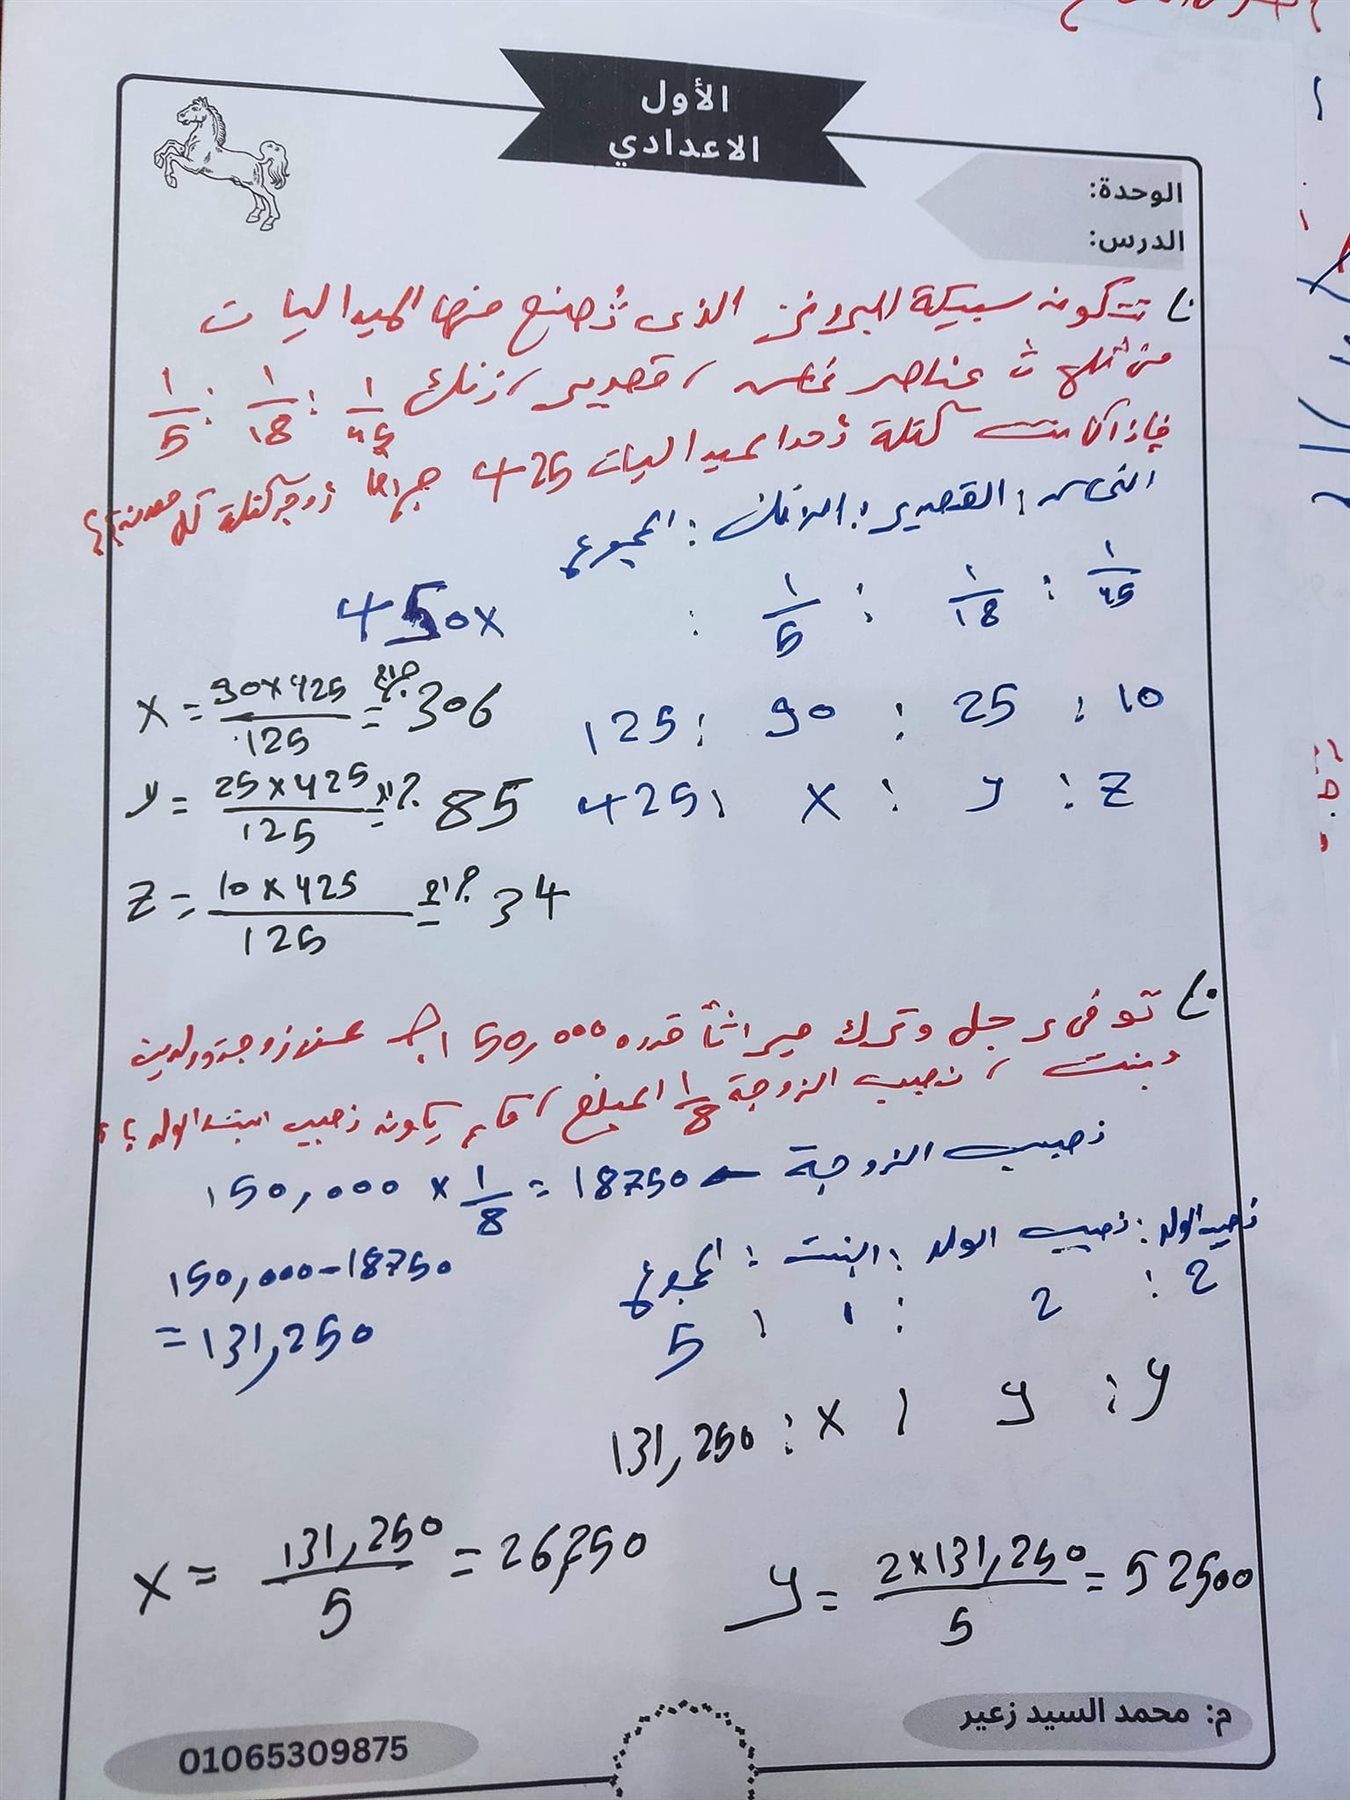 الأول
الاعدادي
الوحدة:
الدرس:
تتكون سبيكة البرونز الذى تُصنع منها الميداليات
من ثلاث عناصر نحاس، قصدير، زنك 1/45 : 1/18 : 1/5
فإذا كانت كتلة أحدا ميداليات 425 جراما أوجد كتلة كل معدن؟؟
النحاس : القصدير : الزنك : المجموع
1/45 : 1/18 : 1/5 :
450x
10 : 25 : 90 : 125
Z : y : x : 425
x = 90 x 425 / 125 = 306 جرام
y = 25 x 425 / 125 = 85 جرام
Z = 10 x 425 / 125 = 34 جرام
توفى رجل وترك ميراثاً قدره 150,000 جـ عن زوجة وولدين
وبنت، نصيب الزوجة 1/8 المبلغ، فكم يكون نصيب البنت الولد؟؟
نصيب الزوجة
150,000 x 1/8 = 18750
150,000 - 18750
= 131,250
نصيب الولد : نصيب الولد : البنت : المجموع
2 : 2 : 1 : 5
y : y : x : 131,250
x = 131,250 / 5 = 26,250
y = 2 x 131,250 / 5 = 52500
م: محمد السيد زعير
01065309875